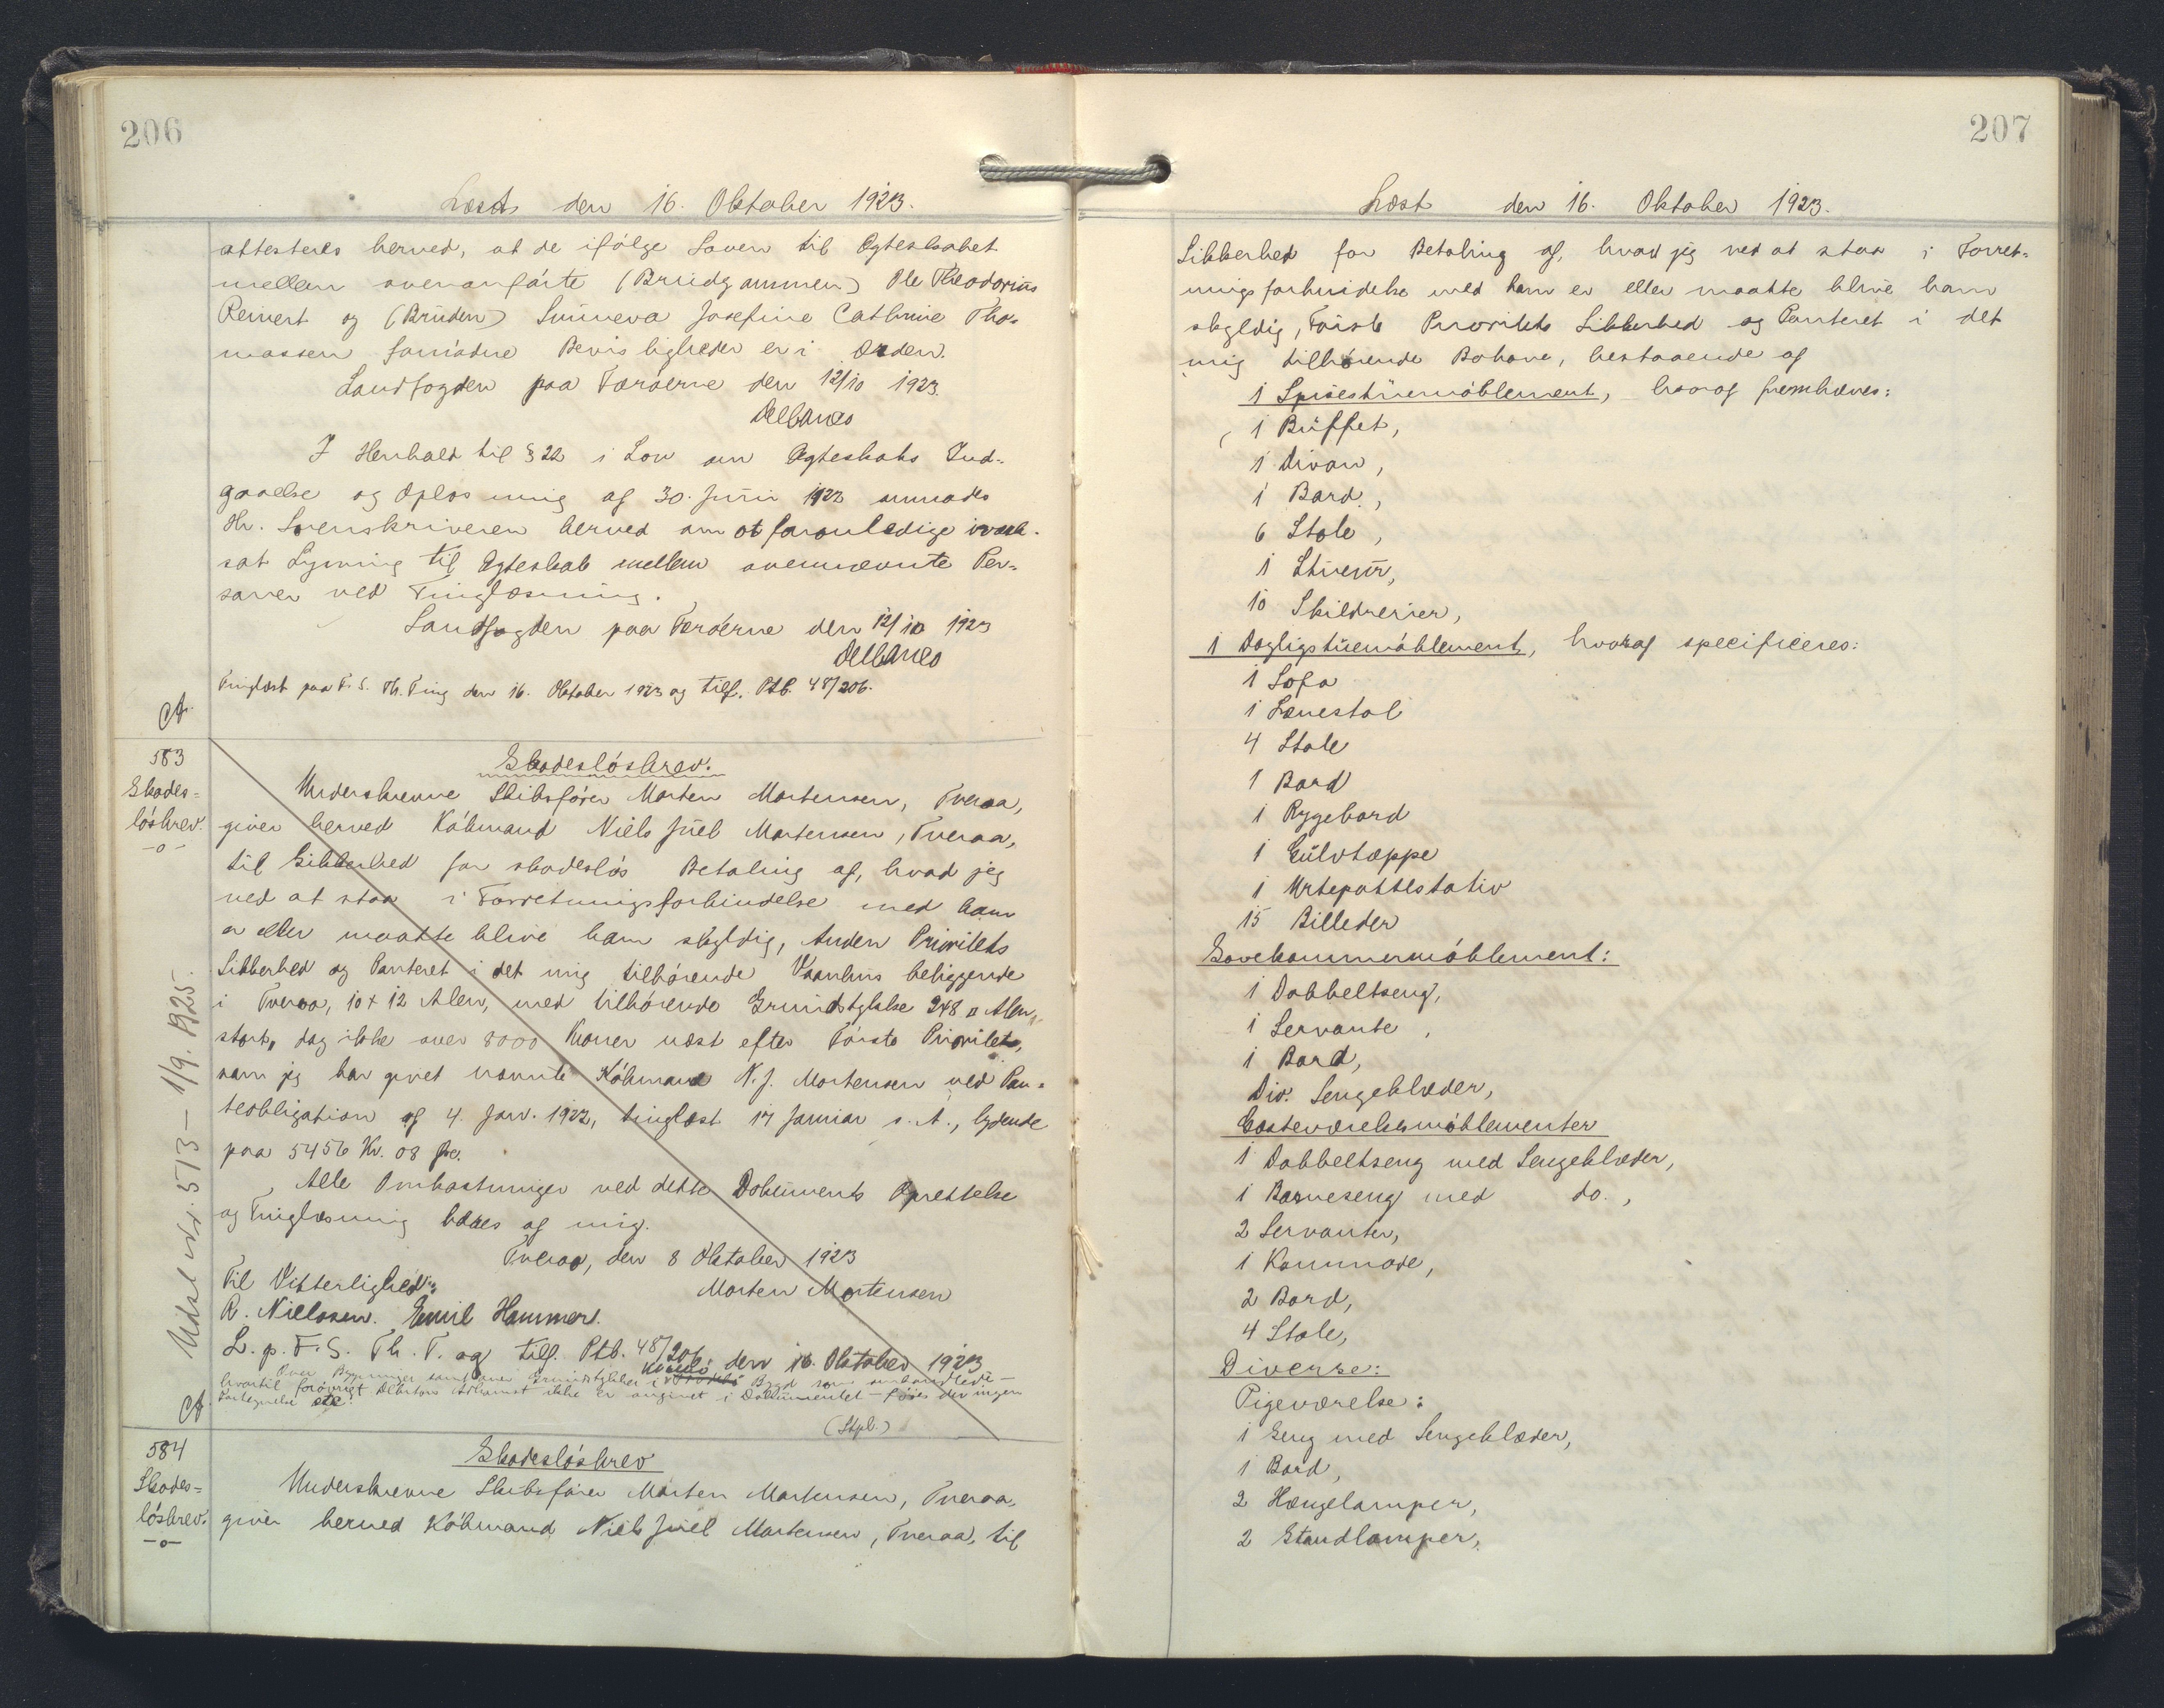 206
Læst den 16. Oktober 1923.
attesteres herved, at de ifølge Loven til Ægteskabet
mellem ovenanførte (Brudgommen) Ole Theodorius
Reinert og (Bruden) Sunneva Josefine Cathrine Tho-
massen fornødne Bevisligheder er i Orden.
Landfogden paa Færøerne den 12/10 1923.
Delbanco
I Henhold til § 22 i Lov om Ægteskabs Ind-
gaaelse og Opløsning af 30. Juni 1922 anmodes
Hr. Sorenskriveren herved om at foranledige iværk-
sat Lysning til Ægteskab mellem ovennævnte Per-
soner ved Tinglæsning.
Landfogden paa Færøerne den 12/10 1923
Delbanco
Tinglæst paa F. S. Th. Ting den 16. Oktober 1923 og tilf. Ptb. 48/206.
583
Skades-
løsbrev.
-o-
Skadesløsbrev.
Underskrevne Skibsfører Morten Mortensen, Tveraa,
giver herved Købmand Niels Juel Mortensen, Tveraa,
til Sikkerhed for skadesløs Betaling af, hvad jeg
ved at staa i Forretningsforbindelse med ham
er eller maatte blive ham skyldig, Anden Prioritets
Sikkerhed og Panteret i det mig tilhørende Vaanhus beliggende
i Tveraa, 10 x 12 Alen, med tilhørende Grundstykke 248 □ Alen
stort, dog ikke over 8000 Kroner næst efter Første Prioritet,
som jeg har givet nævnte Købmand N. J. Mortensen ved Pan-
teobligation af 4. Jan. 1922, tinglæst 17 Januar s. A., lydende
paa 5456 Kr. 08 Øre.
Alle Omkostninger ved dette Dokuments Oprettelse
og Tinglæsning bæres af mig.
Tveraa, den 8 Oktober 1923
Til Vitterlighed:
Morten Mortensen
R. Nielssen. Emil Hammer.
L. p. F. S. Th. T. og tilf. Ptb. 48/206 den 16. Oktober 1923
Over Bygninger samt over Grundstykker i Bygd som omhandlede -
hvortil forøvrigt Debitors Adkomst ikke er angivet i Dokumentet - føres der ingen
Fortegnelse etc.
(Stpl.)
Udsl. vdr. 573 - 1/9. 1925.
584
Skades-
løsbrev.
-o-
Skadesløsbrev
Underskrevne Skibsfører Morten Mortensen, Tveraa,
giver herved Købmand Niels Juel Mortensen, Tveraa, til
207
Læst den 16. Oktober 1923.
Sikkerhed for Betaling af, hvad jeg ved at staa i Forret-
ningsforbindelse med ham er eller maatte blive ham
skyldig, Første Prioritets Sikkerhed og Panteret i det
mig tilhørende Bohave, bestaaende af
1 Spisestuemøblement, hvoraf fremhæves:
1 Buffet,
1 Divan,
1 Bord,
6 Stole,
1 Stueur,
10 Skildrerier,
1 Dagligstuemøblement, hvoraf specificeres:
1 Sofa
1 Lænestol
4 Stole
1 Bord
1 Rygebord
1 Gulvtæppe
1 Urtepottestativ
15 Billeder
Sovekammermøblement:
1 Dobbeltseng,
1 Servante,
1 Bord,
Div. Sengeklæder,
Gæsteværelsesmøblementer
1 Dobbeltseng med Sengeklæder,
1 Barneseng med do.,
2 Servanter,
1 Kommode,
2 Bord,
4 Stole,
Diverse:
Pigeværelse:
1 Seng med Sengeklæder,
1 Bord,
2 Hængelamper,
2 Standlamper,